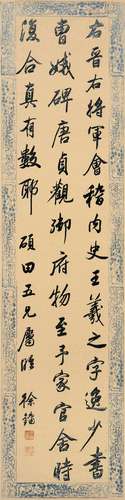 右晉右將軍會稽內史王羲之字逸少書
曹娥碑唐貞觀御府物至予家官舍時
復合真有數耶 碩田五兄屬臨 徐鋆